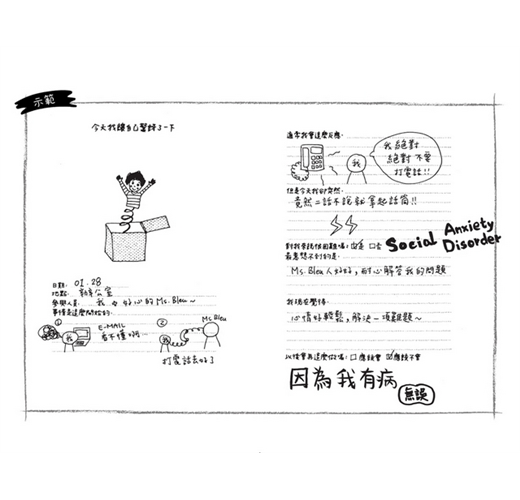 示範
今天我讓自己驚訝了一下
日期: 01.28
地點: 辦公室
參與人員: 我 & 好心的 Ms. Bleu~
事情是這麼開始的:
①
E-MAIL
看不懂啊…
我
②
Ms. Bleu
我
打電話去好了
通常我會這麼反應:
我絕對
絕對不要
打電話!!
我
但是今天我卻突然:
竟然二話不說就拿起話筒!!
對我來說很困難嗎: 是 否
Social Anxiety
Disorder
最意想不到的是:
Ms. Bleu 人好好,耐心解答我的問題
我現在覺得:
心情好輕鬆,解決一項難題~
以後會再這麼做嗎: 應該會 應該不會
因為我有病
無誤